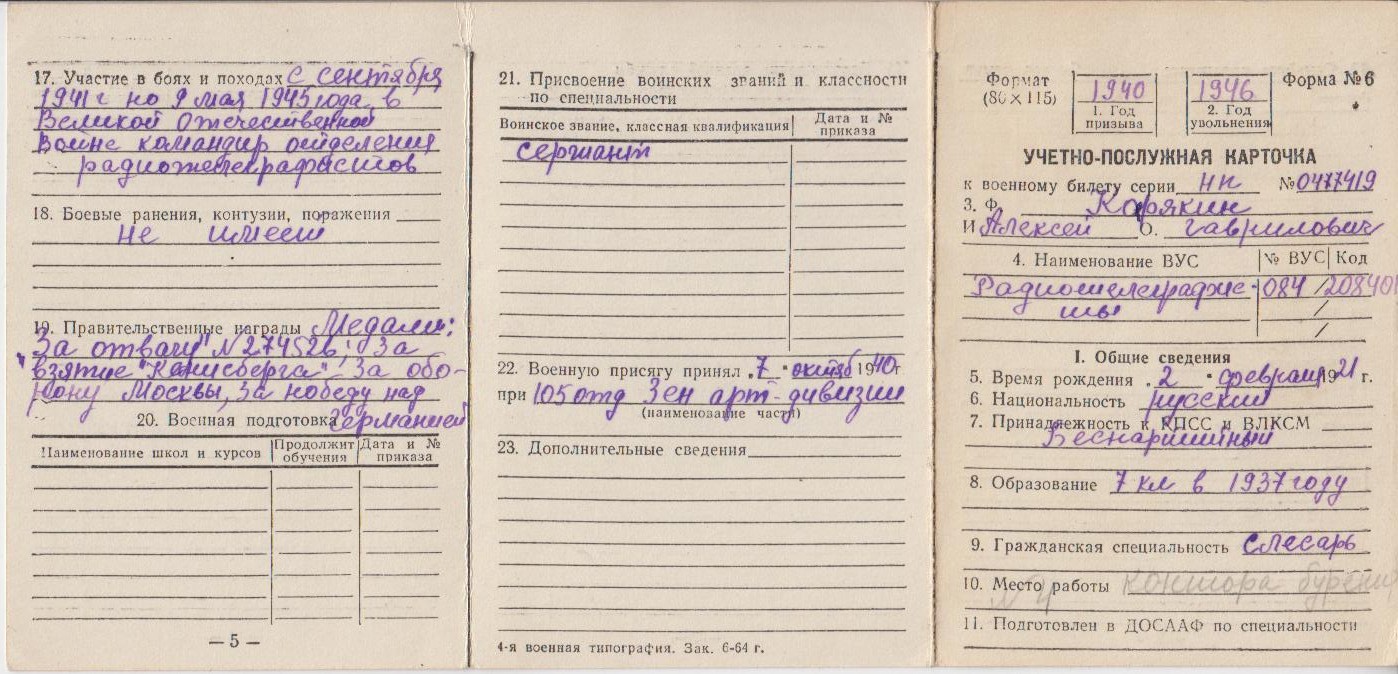 17. Участие в боях и походах с сентября
1941 г по 9 мая 1945 года в
Великой Отечественной
Войне командир отделения
радиотелеграфистов
18. Боевые ранения, контузии, поражения
не имеет
19. Правительственные награды Медали:
"За отвагу" № 274526; За
взятие "Кенисберга" За обо-
рону Москвы, За победу над
20. Военная подготовка Германией
Наименование школ и курсов | Продолжит обучения | Дата и № приказа
— 5 —
21. Присвоение воинских званий и классности
по специальности
Воинское звание, классная квалификация | Дата и № приказа
сержант
22. Военную присягу принял „7" октяб 1940 г
при 105 отд Зен арт-дивизии
(наименование части)
23. Дополнительные сведения
4-я военная типография. Зак. 6-64 г.
Формат
(80×115)
1940
1. Год
призыва
1946
2. Год
увольнения
Форма № 6
УЧЕТНО-ПОСЛУЖНАЯ КАРТОЧКА
к военному билету серии НК № 0477419
3. Ф. Корякин
И Алексей О. Гаврилович
4. Наименование ВУС | № ВУС | Код
Радиотелеграфис- 084 / 208401
ты /
/
I. Общие сведения
5. Время рождения „2" февраля 1921 г.
6. Национальность русский
7. Принадлежность к КПСС и ВЛКСМ
Беспартийный
8. Образование 7 кл в 1937 году
9. Гражданская специальность слесарь
10. Место работы контора бурения
№ 4
11. Подготовлен в ДОСААФ по специальности